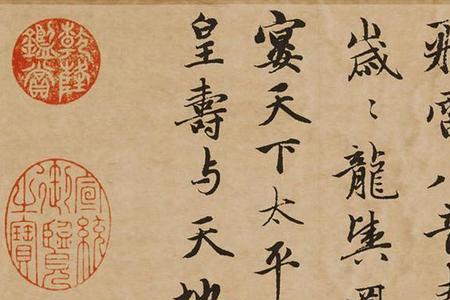 八音
歲〻龍
宴天下太平
皇壽与天地
乾隆鑑賞
宣統御覽之寶